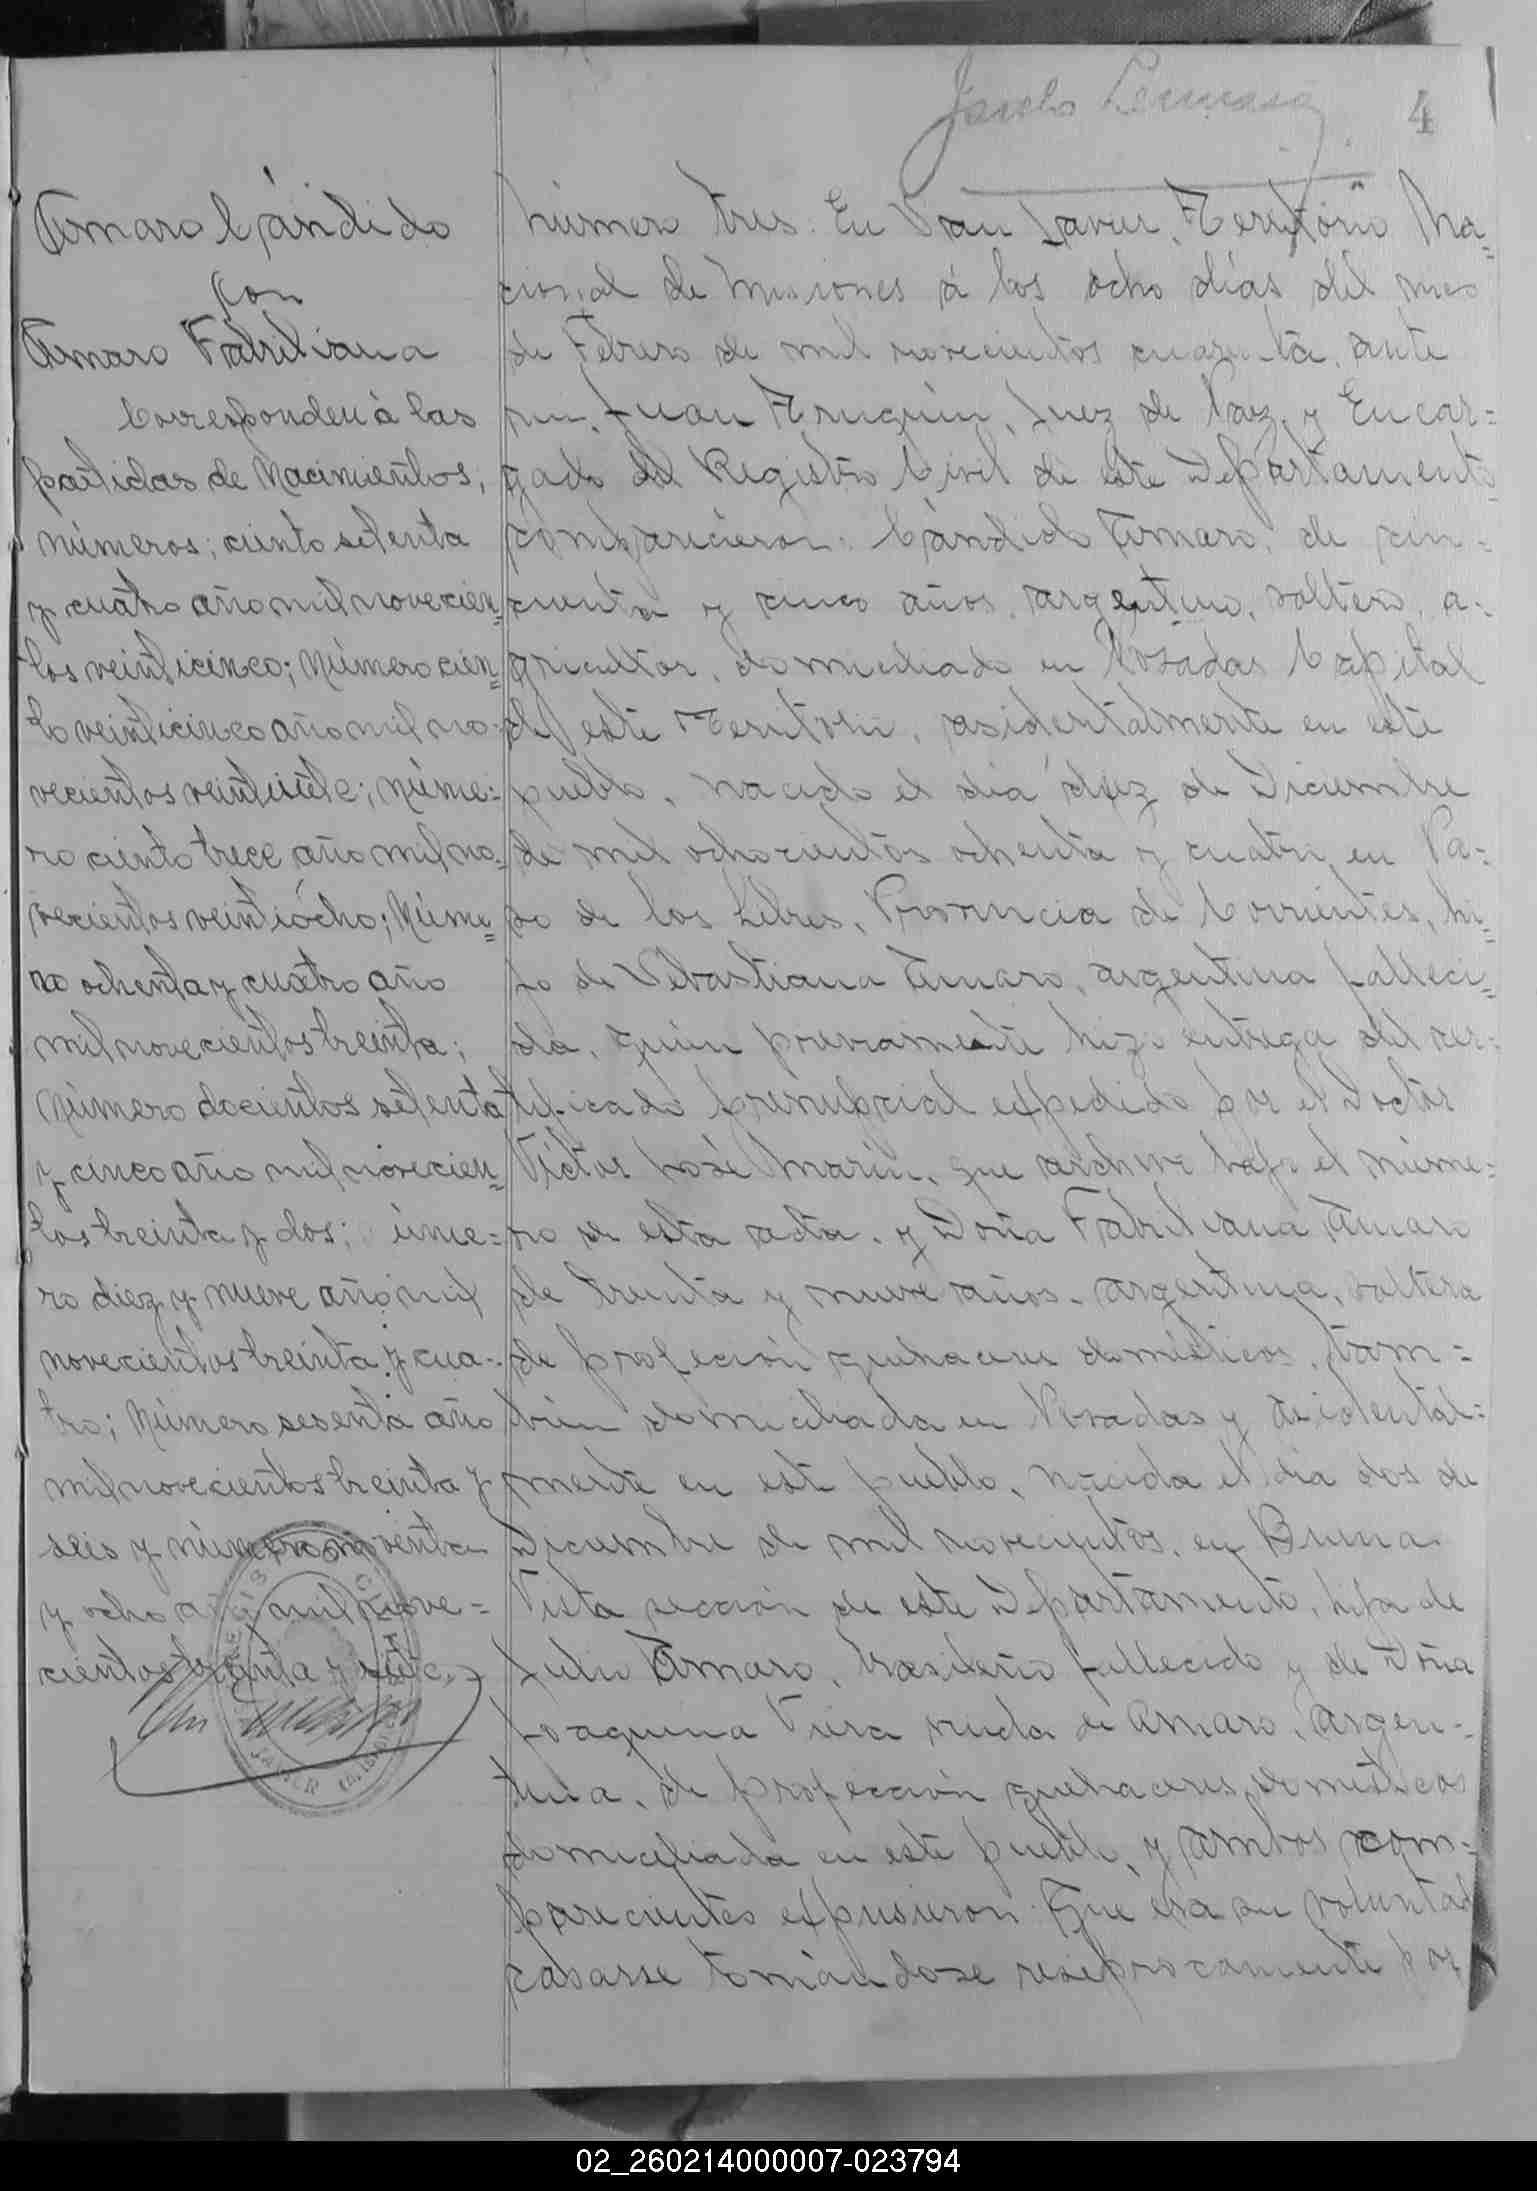 4
Amaro Cándido
con
Amaro Fabriliana
Corresponden à las
partidas de Nacimientos,
números; ciento setenta
y cuatro año mil novecien=
tos veinticinco; Número cien=
to veinticinco año mil no=
vecientos veintisiete; Núme=
ro ciento trece año mil no=
vecientos veintiócho; Núme=
ro ochenta y cuatro año
mil novecientos treinta;
Número docientos setenta
y cinco año mil novecien=
tos treinta y dos; úme=
ro diez y nueve año mil
novecientos treinta y cua=
tro; Número sesenta año
mil novecientos treinta y
seis y número noventa
y ocho año mil nove=
cientos treinta y siete.
Número tres: En San Javier, Territorio Na=
cional de Misiones á los ocho días del mes
de Febrero de mil novecientos cuarenta, ante
mi, Juan Truquin, Juez de Paz y Encar=
gado del Registro Civil de este Departamento
comparecieron: Cándido Amaro, de cin=
cuenta y cinco años, argentino, soltero, a=
gricultor, domiciliado en Posadas Capital
de este Territorio, asidentalmente en este
pueblo, nacido el día diez de Diciembre
de mil ochocientos ochenta y cuatro en Pa=
so de los Libres, Provincia de Corrientes, hi=
jo de Sebastiana Amaro, argentina falleci=
da, quién previamente hizo entrega del cer=
tificado prenupcial expedido por el Doctor
Víctor José Marin, que archivo bajo el núme=
ro de esta acta. y Doña Fabriliana Amaro
de treinta y nueve años, argentina, soltera
de profeción quehaceres domésticos, tam=
bien domiciliada en Posadas y asidental=
mente en este pueblo, nacida el día dos de
Diciembre de mil novecientos, en Buena
Vista sección de este Departamento, hija de
Julio Amaro, brasileño fallecido y de Doña
Joaquina Viera viuda de Amaro, argen=
tina, de profección quehaceres domésticos
domiciliada en este pueblo, y ambos com=
parecientes expusieron: Que era su voluntad
casarse tomándose resiprocamente por
02_260214000007-023794